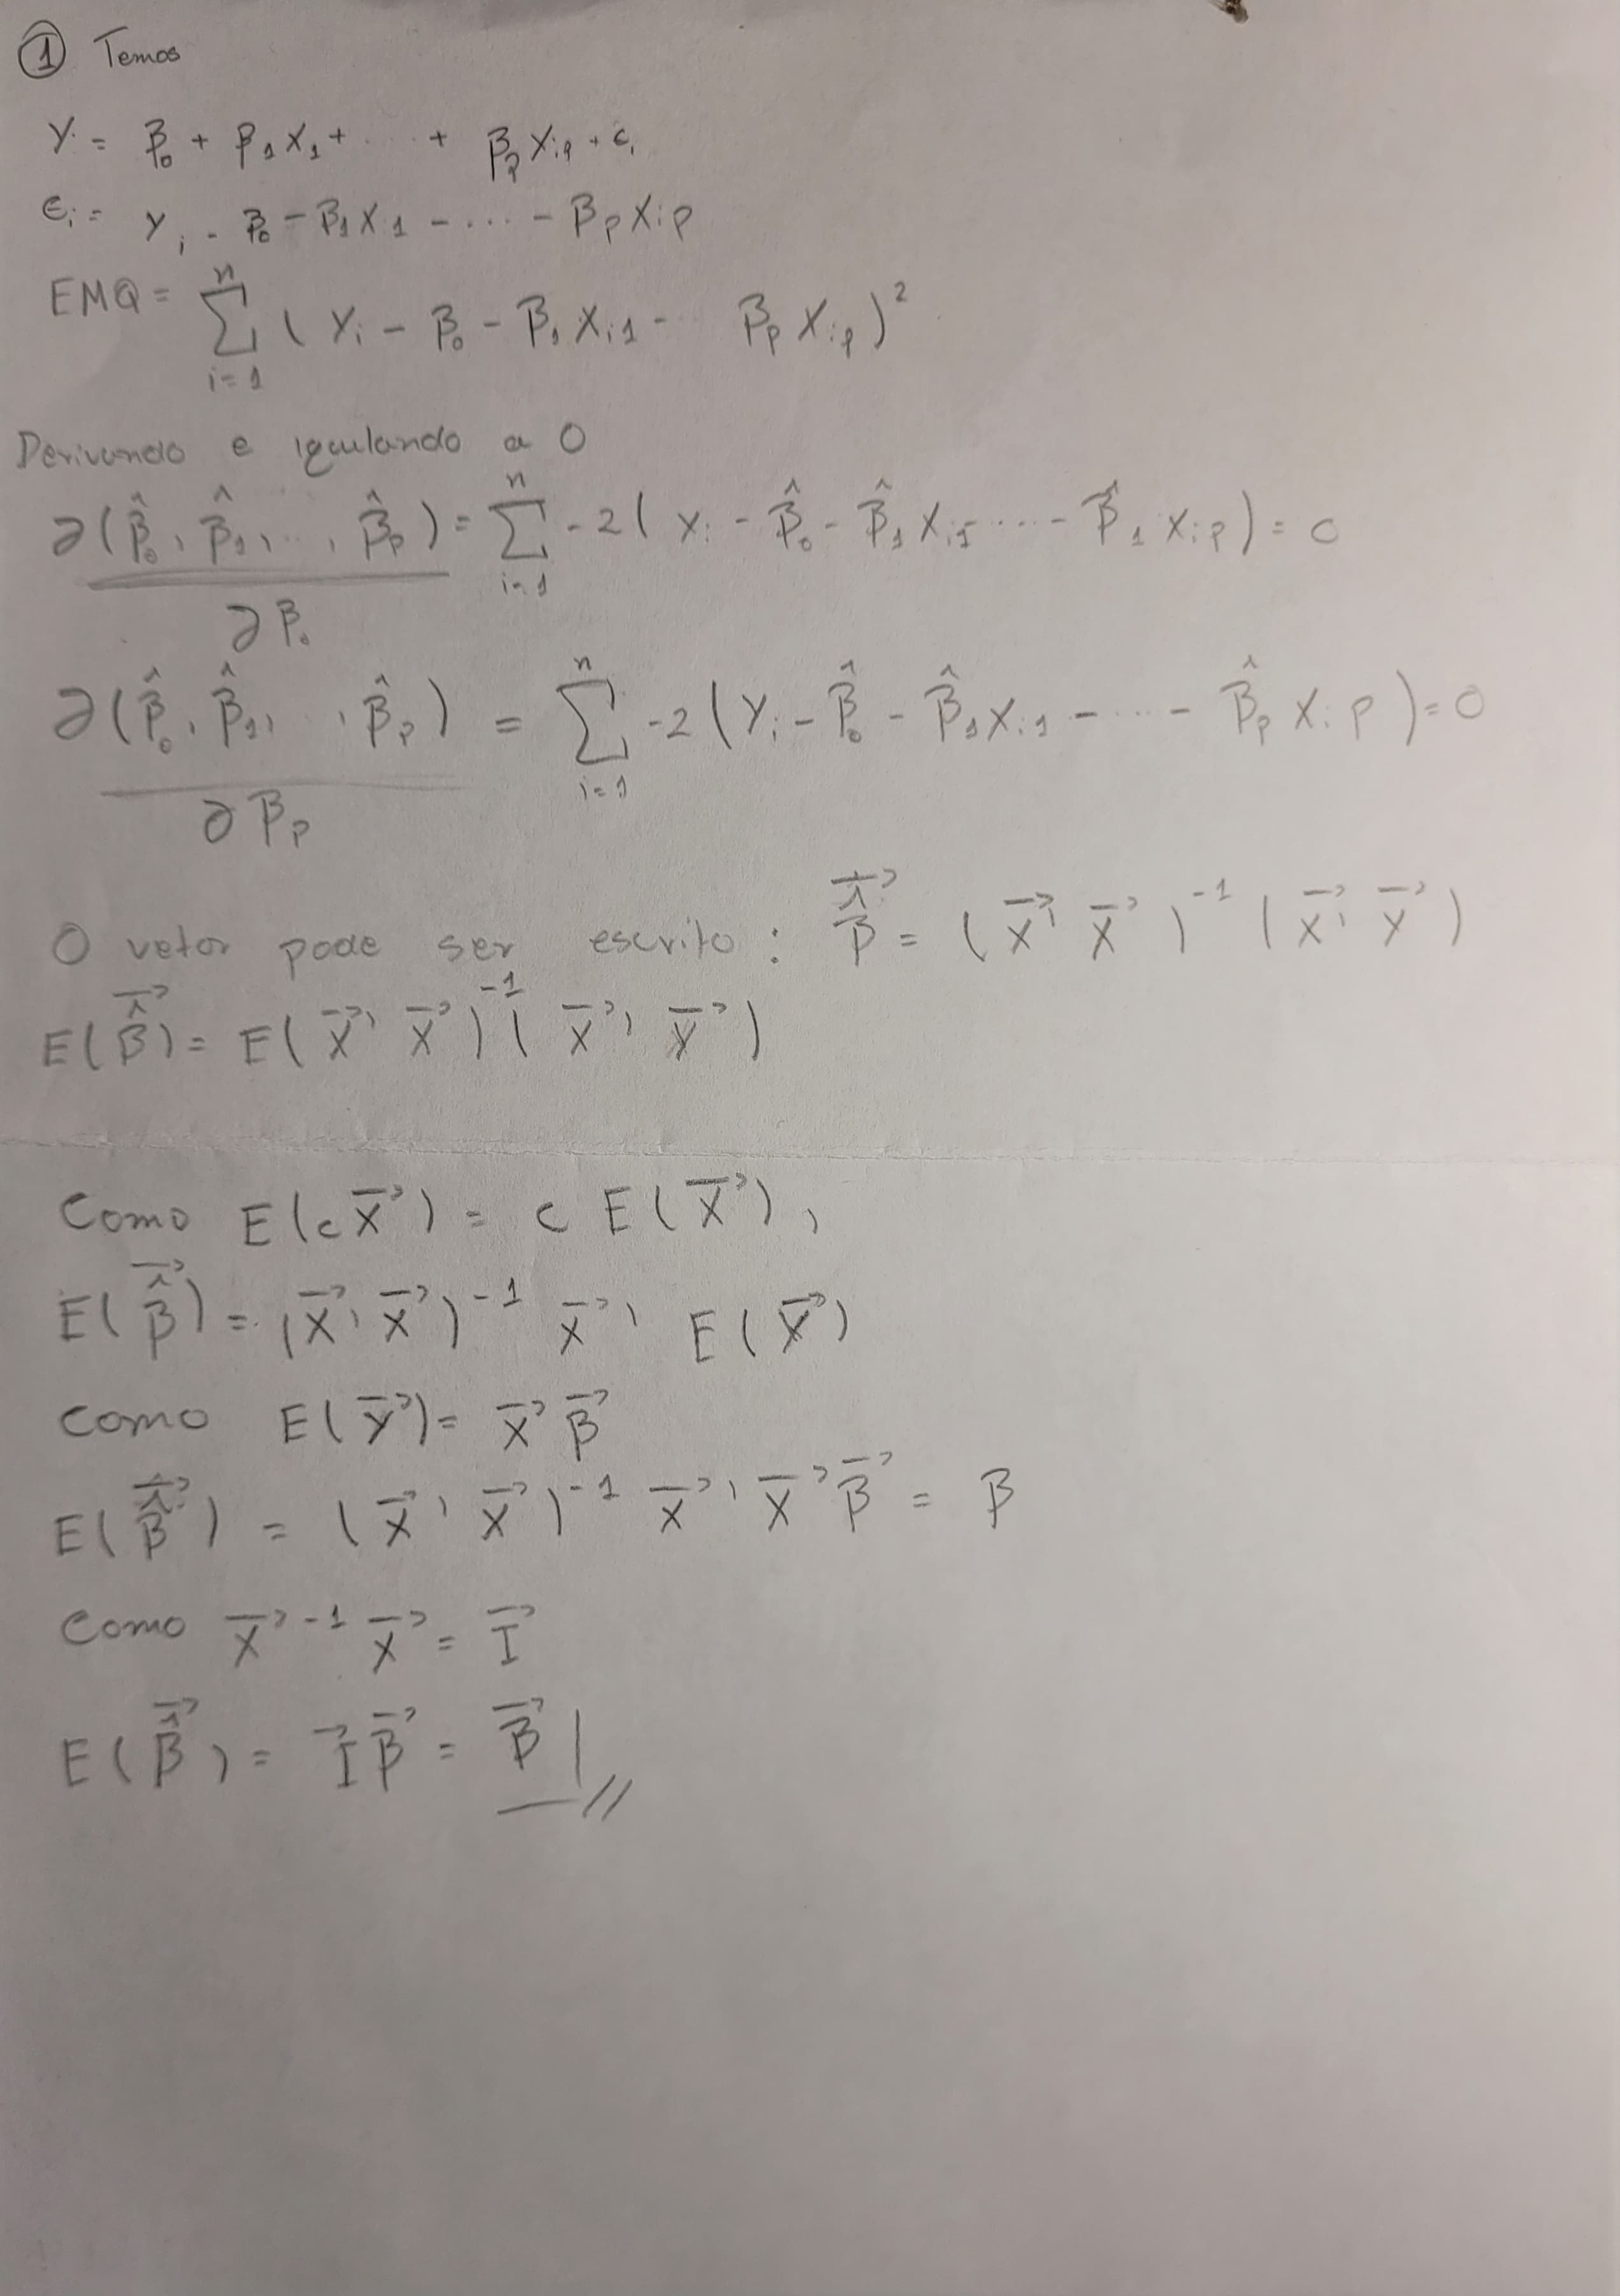 ① Temos
Y = β₀ + β₁X₁ + ··· + βₚXᵢₚ + εᵢ
εᵢ = Yᵢ - β₀ - β₁X₁ - ···· - βₚXᵢₚ
EMQ = ∑ᵢ₌₁ⁿ (Yᵢ - β₀ - β₁Xᵢ₁ - ·· βₚXᵢₚ)²
Derivando e igualando a 0
∂(β̂₀, β̂₁, ··, β̂ₚ)/∂β₀ = ∑ᵢ₌₁ⁿ -2(Yᵢ - β̂₀ - β̂₁Xᵢ₁ - ···· - β̂₁Xᵢₚ) = 0
∂(β̂₀, β̂₁, ··, β̂ₚ)/∂βₚ = ∑ᵢ₌₁ⁿ -2(Yᵢ - β̂₀ - β̂₁Xᵢ₁ - ··· - β̂ₚXᵢₚ) = 0
O vetor pode ser escrito: β̂⃗ = (X⃗' X⃗)⁻¹ (X⃗' Y⃗)
E(β̂⃗) = E(X⃗' X⃗)⁻¹ (X⃗' Y⃗)
Como E(cX⃗) = c E(X⃗),
E(β̂⃗) = (X⃗' X⃗)⁻¹ X⃗' E(Y⃗)
Como E(Y⃗) = X⃗ β⃗
E(β̂⃗) = (X⃗' X⃗)⁻¹ X⃗' X⃗ β⃗ = β
Como X⃗⁻¹ X⃗ = I⃗
E(β̂⃗) = I⃗ β⃗ = β⃗ //